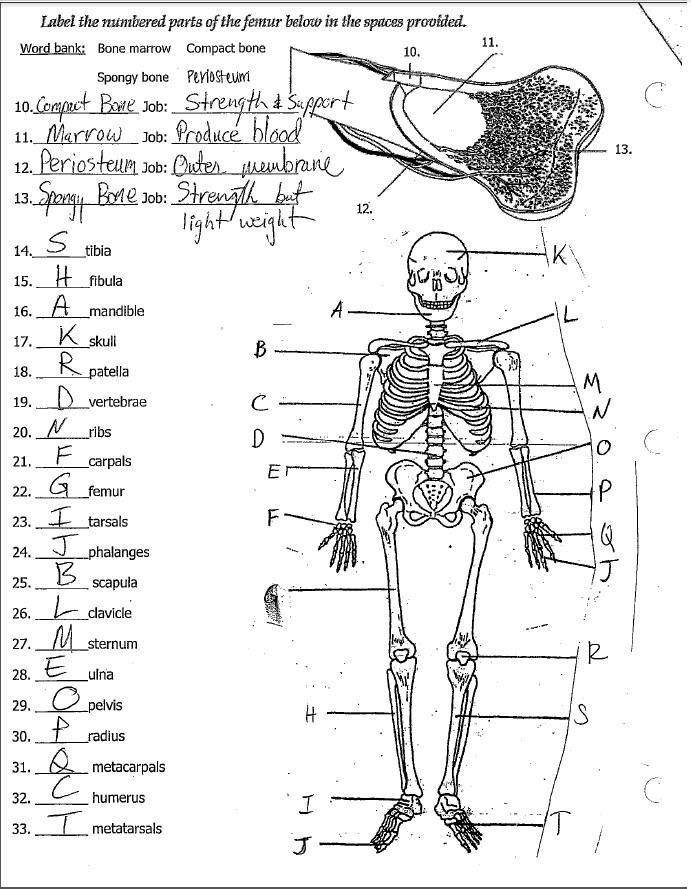 Label the numbered parts of the femur below in the spaces provided.
Word bank: Bone marrow Compact bone
Spongy bone Periosteum
10. Compact Bone Job: Strength & Support
11. Marrow Job: Produce blood
12. Periosteum Job: Outer membrane
13. Spongy Bone Job: Strength but
light weight
10.
11.
13.
12.
14. S tibia
15. H fibula
16. A mandible
17. K skull
18. R patella
19. D vertebrae
20. N ribs
21. F carpals
22. G femur
23. I tarsals
24. J phalanges
25. B scapula
26. L clavicle
27. M sternum
28. E ulna
29. O pelvis
30. P radius
31. Q metacarpals
32. C humerus
33. T metatarsals
K
A
L
B
M
C
N
D
O
E
P
F
Q
J
R
H
S
I
T
J